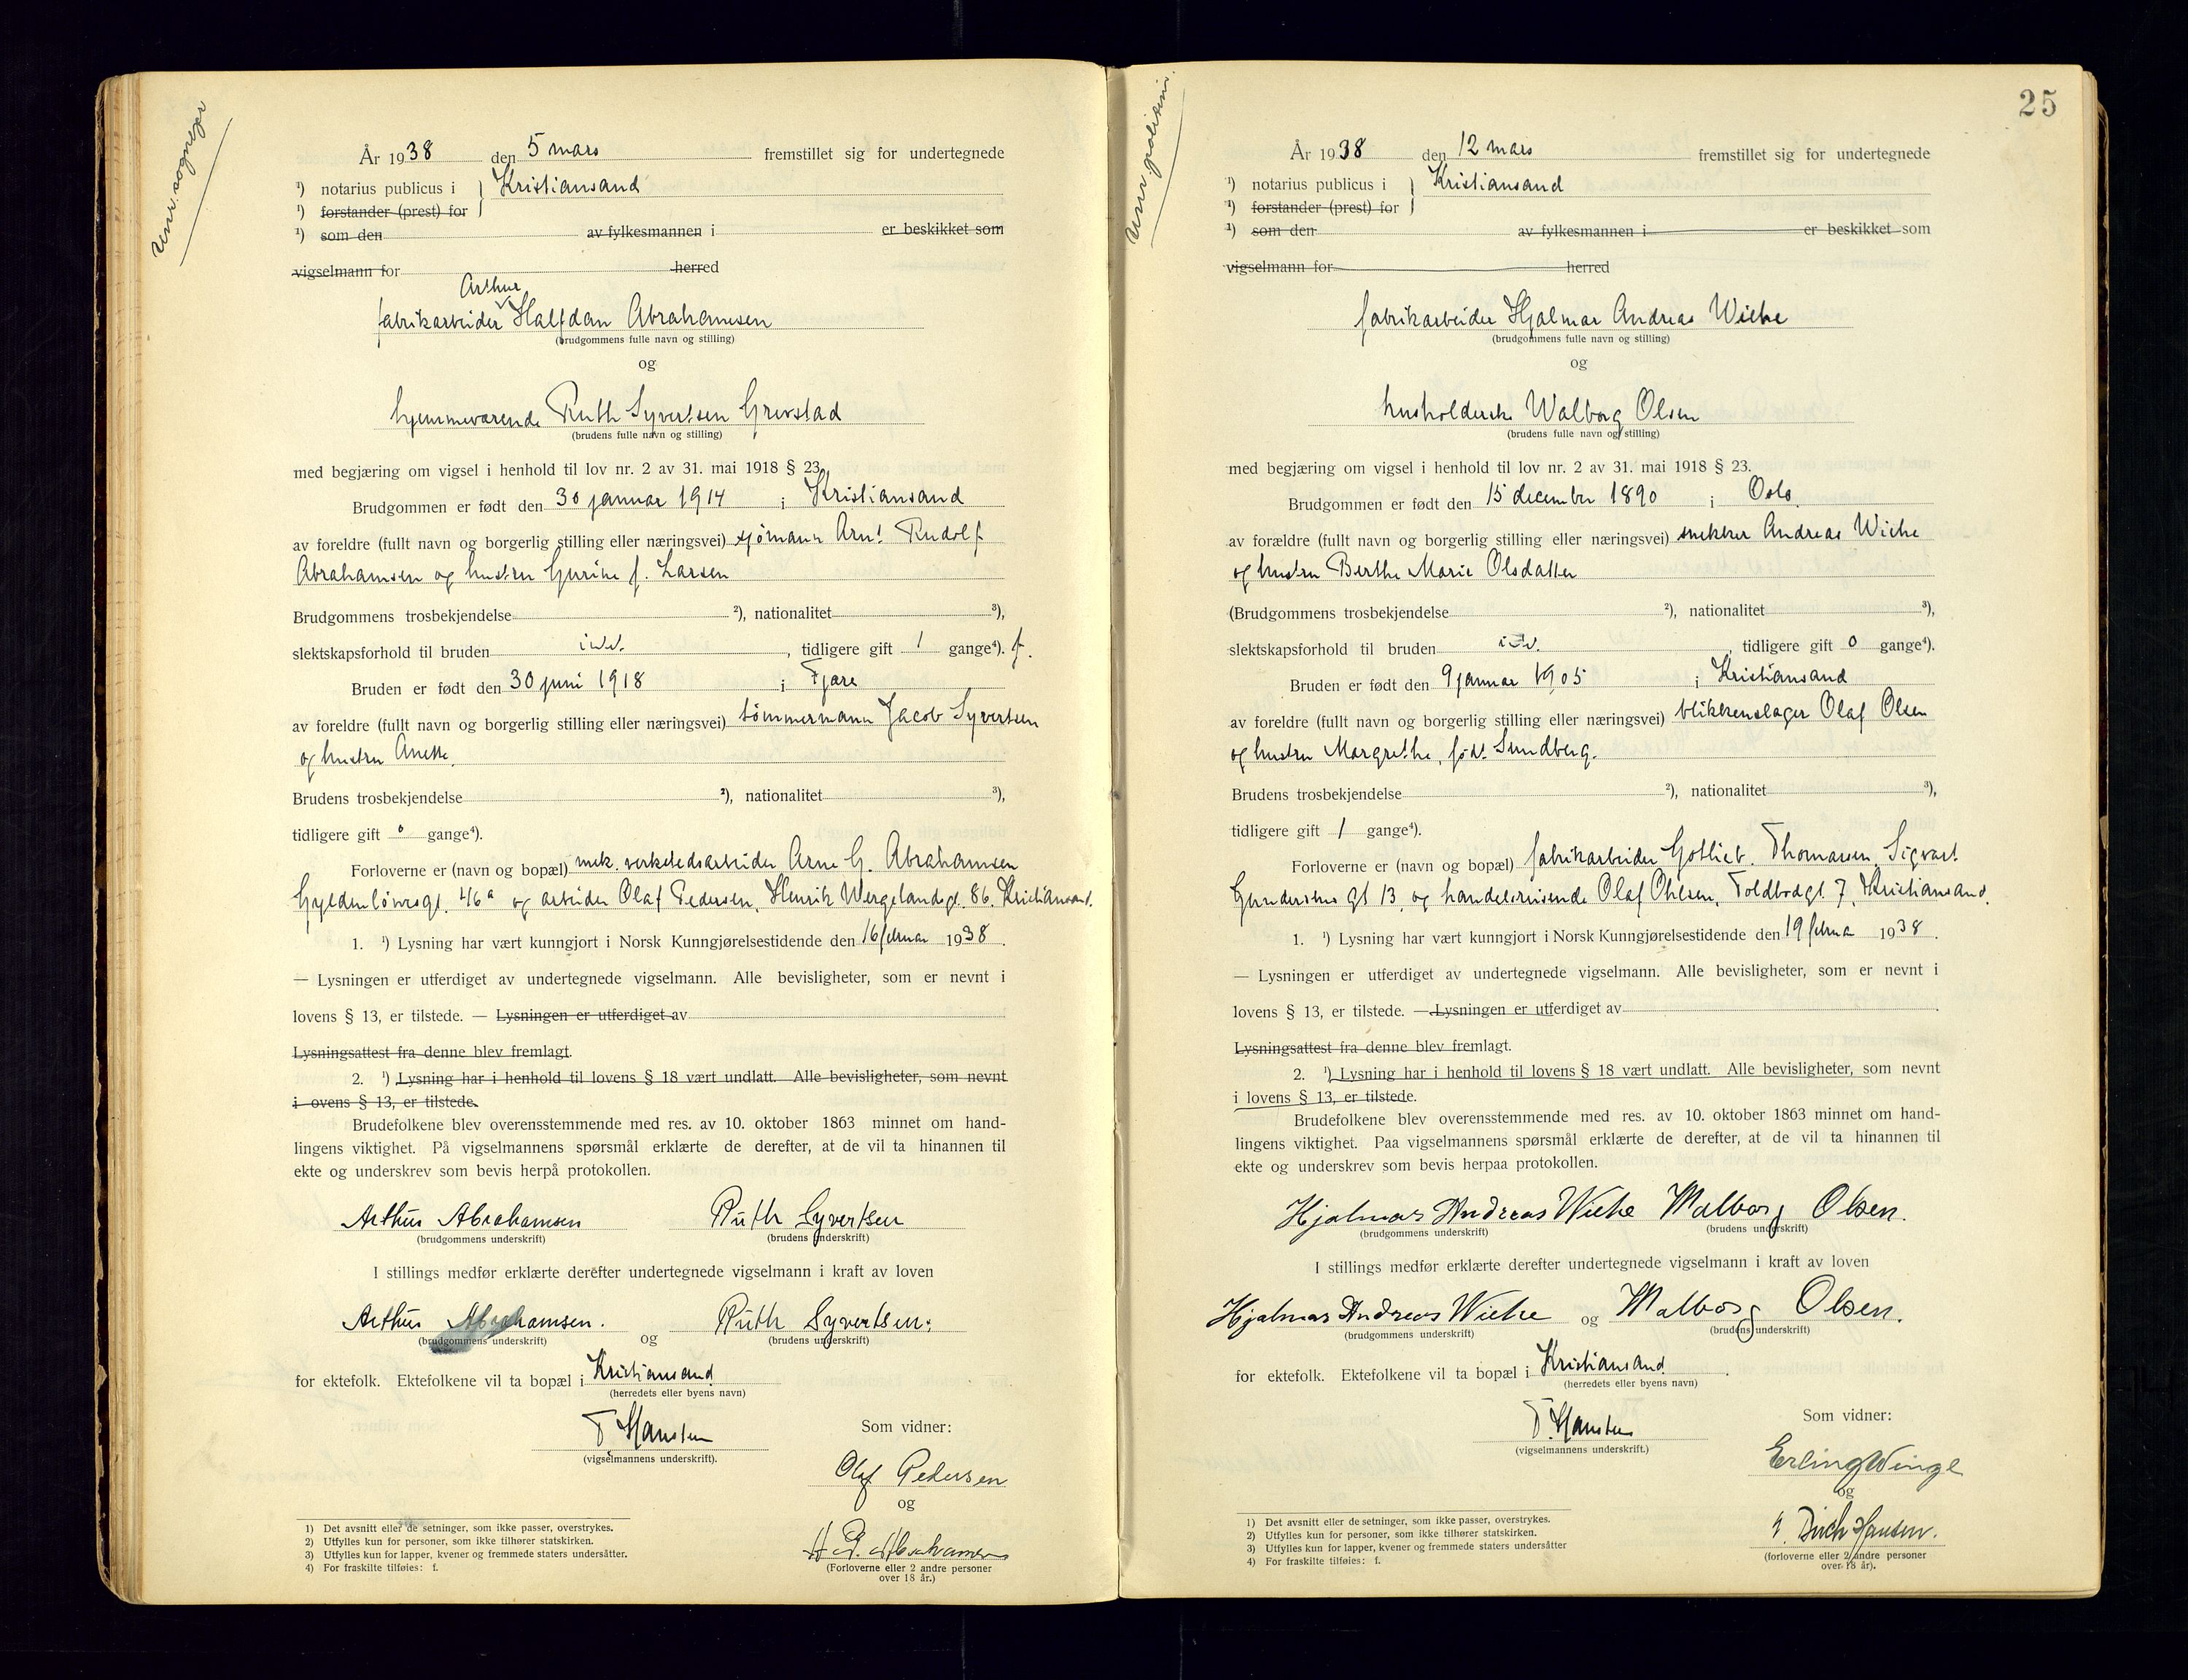 Unr. sogneprs
År 1938 den 5 mars fremstillet sig for undertegnede
¹) notarius publicus i } Kristiansand
¹) forstander (prest) for
¹) som den av fylkesmannen i er beskikket som
vigselmann for herred
Arthur
fabrikarbeider Halfdan Abrahamsen
(brudgommens fulle navn og stilling)
og
hjemmeværende Ruth Syvertsen Grevstad
(brudens fulle navn og stilling)
med begjæring om vigsel i henhold til lov nr. 2 av 31. mai 1918 § 23.
Brudgommen er født den 30 januar 1914 i Kristiansand
av foreldre (fullt navn og borgerlig stilling eller næringsvei) sjømann Arnt Rudolf
Abrahamsen og hustru Gurine f. Larsen
Brudgommens trosbekjendelse ²), nationalitet ³),
slektskapsforhold til bruden intet. , tidligere gift 1 gange⁴). f.
Bruden er født den 30 juni 1918 i Fjære
av foreldre (fullt navn og borgerlig stilling eller næringsvei) tømmermann Jacob Syvertsen
og hustru Anette.
Brudens trosbekjendelse ²), nationalitet ³),
tidligere gift 0 gange⁴).
Forloverne er (navn og bopæl) mek. verkstedsarbeider Arne G. Abrahamsen
Gyldenløvesgt. 46a og arbeider Olaf Pedersen, Henrik Wergelandsgt. 86. Kristiansand.
1. ¹) Lysning har vært kunngjort i Norsk Kunngjørelsestidende den 16 februar 1938.
— Lysningen er utferdiget av undertegnede vigselmann. Alle bevisligheter, som er nevnt i
lovens § 13, er tilstede. — Lysningen er utferdiget av
Lysningsattest fra denne blev fremlagt.
2. ¹) Lysning har i henhold til lovens § 18 vært undlatt. Alle bevisligheter, som nevnt
i ovens § 13, er tilstede.
Brudefolkene blev overensstemmende med res. av 10. oktober 1863 minnet om hand-
lingens viktighet. På vigselmannens spørsmål erklærte de derefter, at de vil ta hinannen til
ekte og underskrev som bevis herpå protokollen.
Arthur Abrahamsen Ruth Syvertsen
(brudgommens underskrift) (brudens underskrift)
I stillings medfør erklærte derefter undertegnede vigselmann i kraft av loven
Arthur Abrahamsen. og Ruth Syvertsen.
(brudgommens underskrift) (brudens underskrift)
for ektefolk. Ektefolkene vil ta bopæl i Kristiansand
(herredets eller byens navn)
T Hansen
(vigselmannens underskrift).
Som vidner:
Olaf Pedersen
og
A. G. Abrahamsen
(Forloverne eller 2 andre personer
over 18 år.)
1) Det avsnitt eller de setninger, som ikke passer, overstrykes.
2) Utfylles kun for personer, som ikke tilhører statskirken.
3) Utfylles kun for lapper, kvener og fremmede staters undersåtter.
4) For fraskilte tilføies: f.
25
Unr. politim.
År 1938 den 12 mars fremstillet sig for undertegnede
¹) notarius publicus i } Kristiansand
¹) forstander (prest) for
¹) som den av fylkesmannen i er beskikket som
vigselmann for herred
fabrikarbeider Hjalmar Andreas Wiche
(brudgommens fulle navn og stilling)
og
husholderske Walborg Olsen
(brudens fulle navn og stilling)
med begjæring om vigsel i henhold til lov nr. 2 av 31. mai 1918 § 23.
Brudgommen er født den 15 december 1890 i Oslo.
av forældre (fullt navn og borgerlig stilling eller næringsvei) snekker Andreas Wiche
og hustru Berthe Marie Olsdatter
(Brudgommens trosbekjendelse ²), nationalitet ³),
slektskapsforhold til bruden intet. , tidligere gift 0 gange⁴).
Bruden er født den 9 januar 1905 i Kristiansand
av foreldre (fullt navn og borgerlig stilling eller næringsvei) blikkenslager Olaf Olsen
og hustru Margrethe, født Sundberg.
Brudens trosbekjendelse ²), nationalitet ³),
tidligere gift 1 gange⁴).
Forloverne er (navn og bopæl) fabrikarbeider Gotlieb. Thomassen, Sigvart
Gundersens gt 13, og handelsreisende Olaf Ohlsen, Toldbodgt. 7, Kristiansand.
1. ¹) Lysning har vært kunngjort i Norsk Kunngjørelsestidende den 19 februa 1938.
— Lysningen er utferdiget av undertegnede vigselmann. Alle bevisligheter, som er nevnt i
lovens § 13, er tilstede. — Lysningen er utferdiget av
Lysningsattest fra denne blev fremlagt.
2. ¹) Lysning har i henhold til lovens § 18 vært undlatt. Alle bevisligheter, som nevnt
i lovens § 13, er tilstede.
Brudefolkene blev overensstemmende med res. av 10. oktober 1863 minnet om hand-
lingens viktighet. Paa vigselmannens spørsmål erklærte de derefter, at de vil ta hinannen til
ekte og underskrev som bevis herpaa protokollen.
Hjalmar Andreas Wiche Walborg Olsen.
(brudgommens underskrift) (brudens underskrift)
I stillings medfør erklærte derefter undertegnede vigselmann i kraft av loven
Hjalmar Andreas Wiche og Walborg Olsen.
(brudgommens underskrift) (brudens underskrift)
for ektefolk. Ektefolkene vil ta bopæl i Kristiansand.
(herredets eller byens navn)
T. Hansen
(vigselmannens underskrift.)
Som vidner:
Erling Winge
og
Dirch Hansen.
(forloverne eller 2 andre personer
over 18 år).
1) Det avsnitt eller de setninger, som ikke passer, overstrykes.
2) Utfylles kun for personer, som ikke tilhører statskirken.
3) Utfylles kun for lapper, kvener og fremmede staters undersåtter
4) For fraskilte tilføies: f.